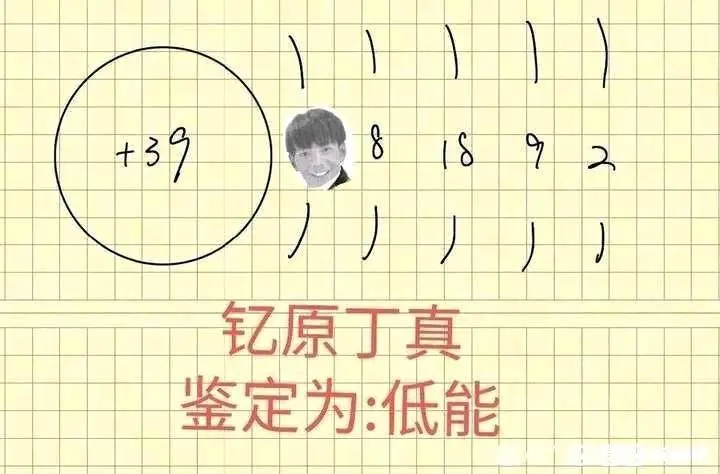 +39 8 18 9 2
钇原丁真
鉴定为:低能